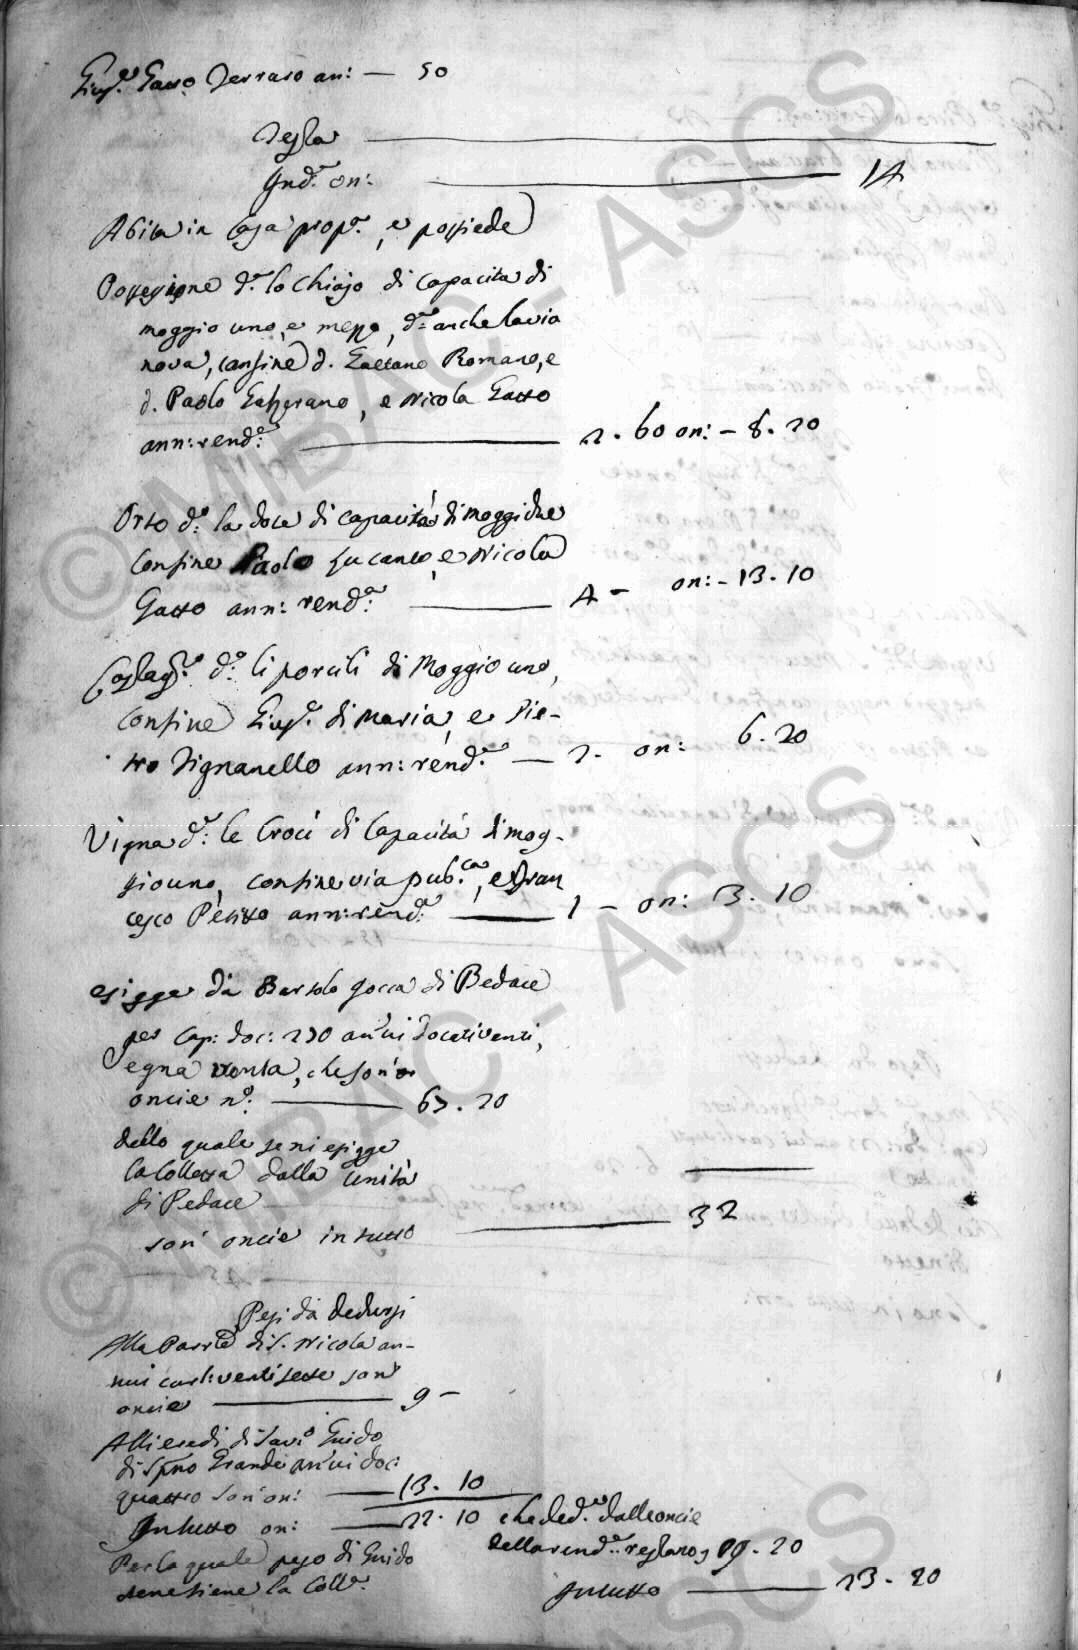 Giusp.e Gatto Ferraro an: — 50
Testa
Ind.a on: 14
Abita in casa prop.a, e possiede
Possessione d.a lo Chiajo di capacità di
moggio uno, e mezzo, d.a anche la via
nova, confine d. Gaetano Romano, e
d. Paolo, e Nicola Gatto
ann: rend.a 2. 60 on: - 8. 20
Orto d.o la doce di capacità di moggi due
confine Paolo Lucante, e Nicola
Gatto ann: rend.a 4 - on: - 13. 10
Castag.o d.o li porcili di Moggio uno,
confine Giusp.e di Maria, e Pie-
tro Pignanello ann: rend.a — 2. on: 6. 20
Vigna d.a le Croci di capacità di mog-
gio uno, confine via pub.ca, e Fran
cesco Petitto ann: rend.a 1 - on: 3. 10
esigge da Bartolo Jocca di Pedace
per cap: doc: 230 annui docati venti,
e gna trenta, che son'
oncie n.o 67. 20
dello quale se ni esigge
la Colletta dalla Unità
di Pedace
son' oncie in tutto 32
Pesi da dedursi
Alla Parr.a di S. Nicola an-
nui carl: venti sette son'
oncie 9 -
Alli eredi di Sav.o Guido
di Sp.no Grande annui doc:
quattro son' on: 13. 10
In tutto on: 22. 10 che ded.e dalle oncie
della rend.a restano, 9. 20
Per la quale peso di Guido
se ne tiene la Coll.a
In tutto 23. 20